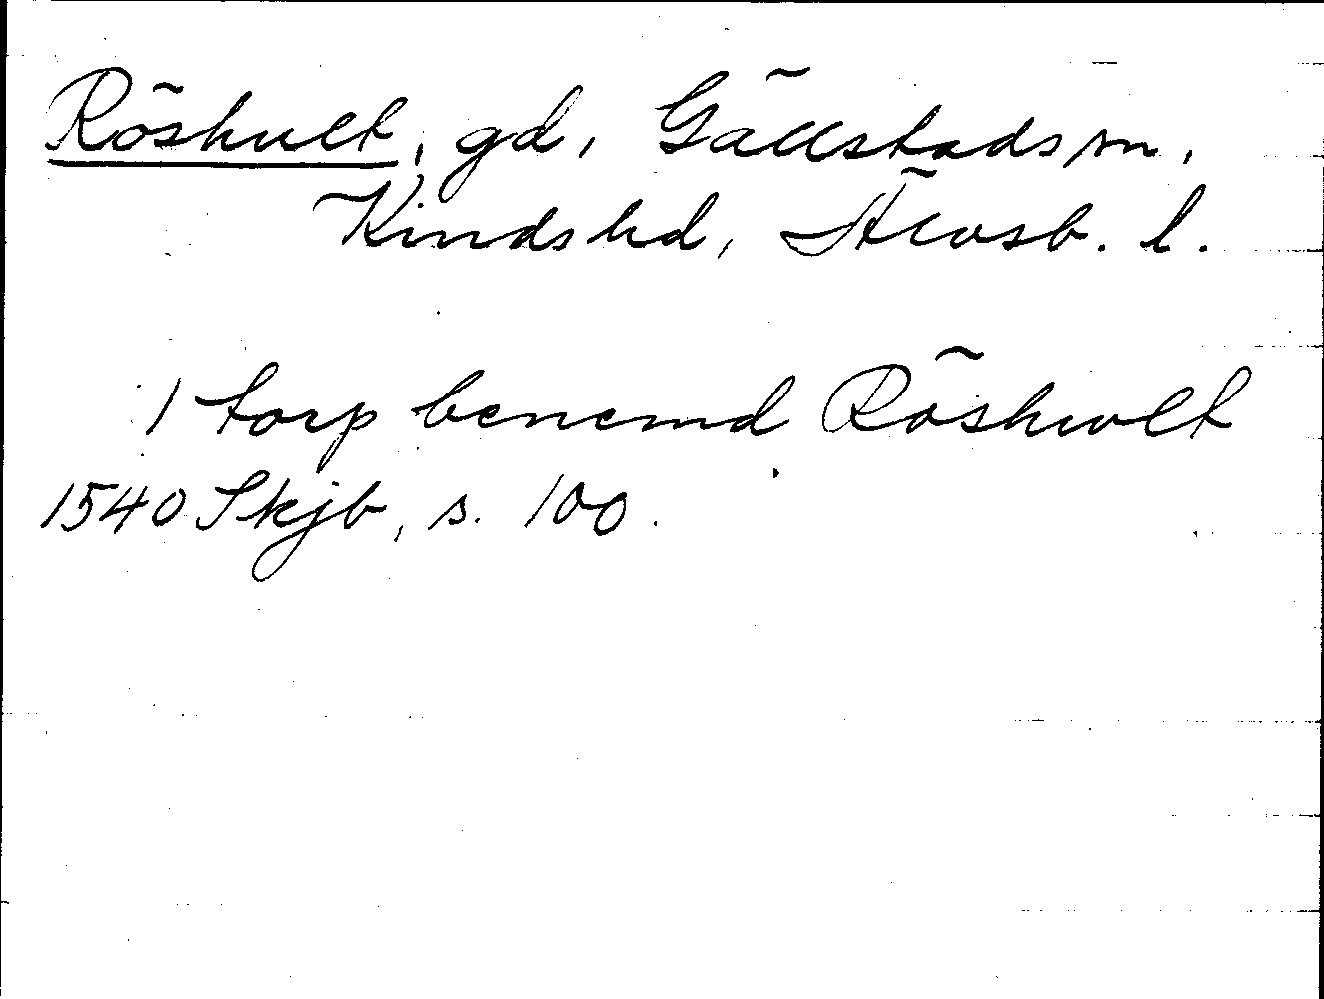 Röshult, gd, Gällstads sn,
Kinds hd, Älvsb. l.
1 torp benemd Röshwlt
1540 Skjb, s. 100.